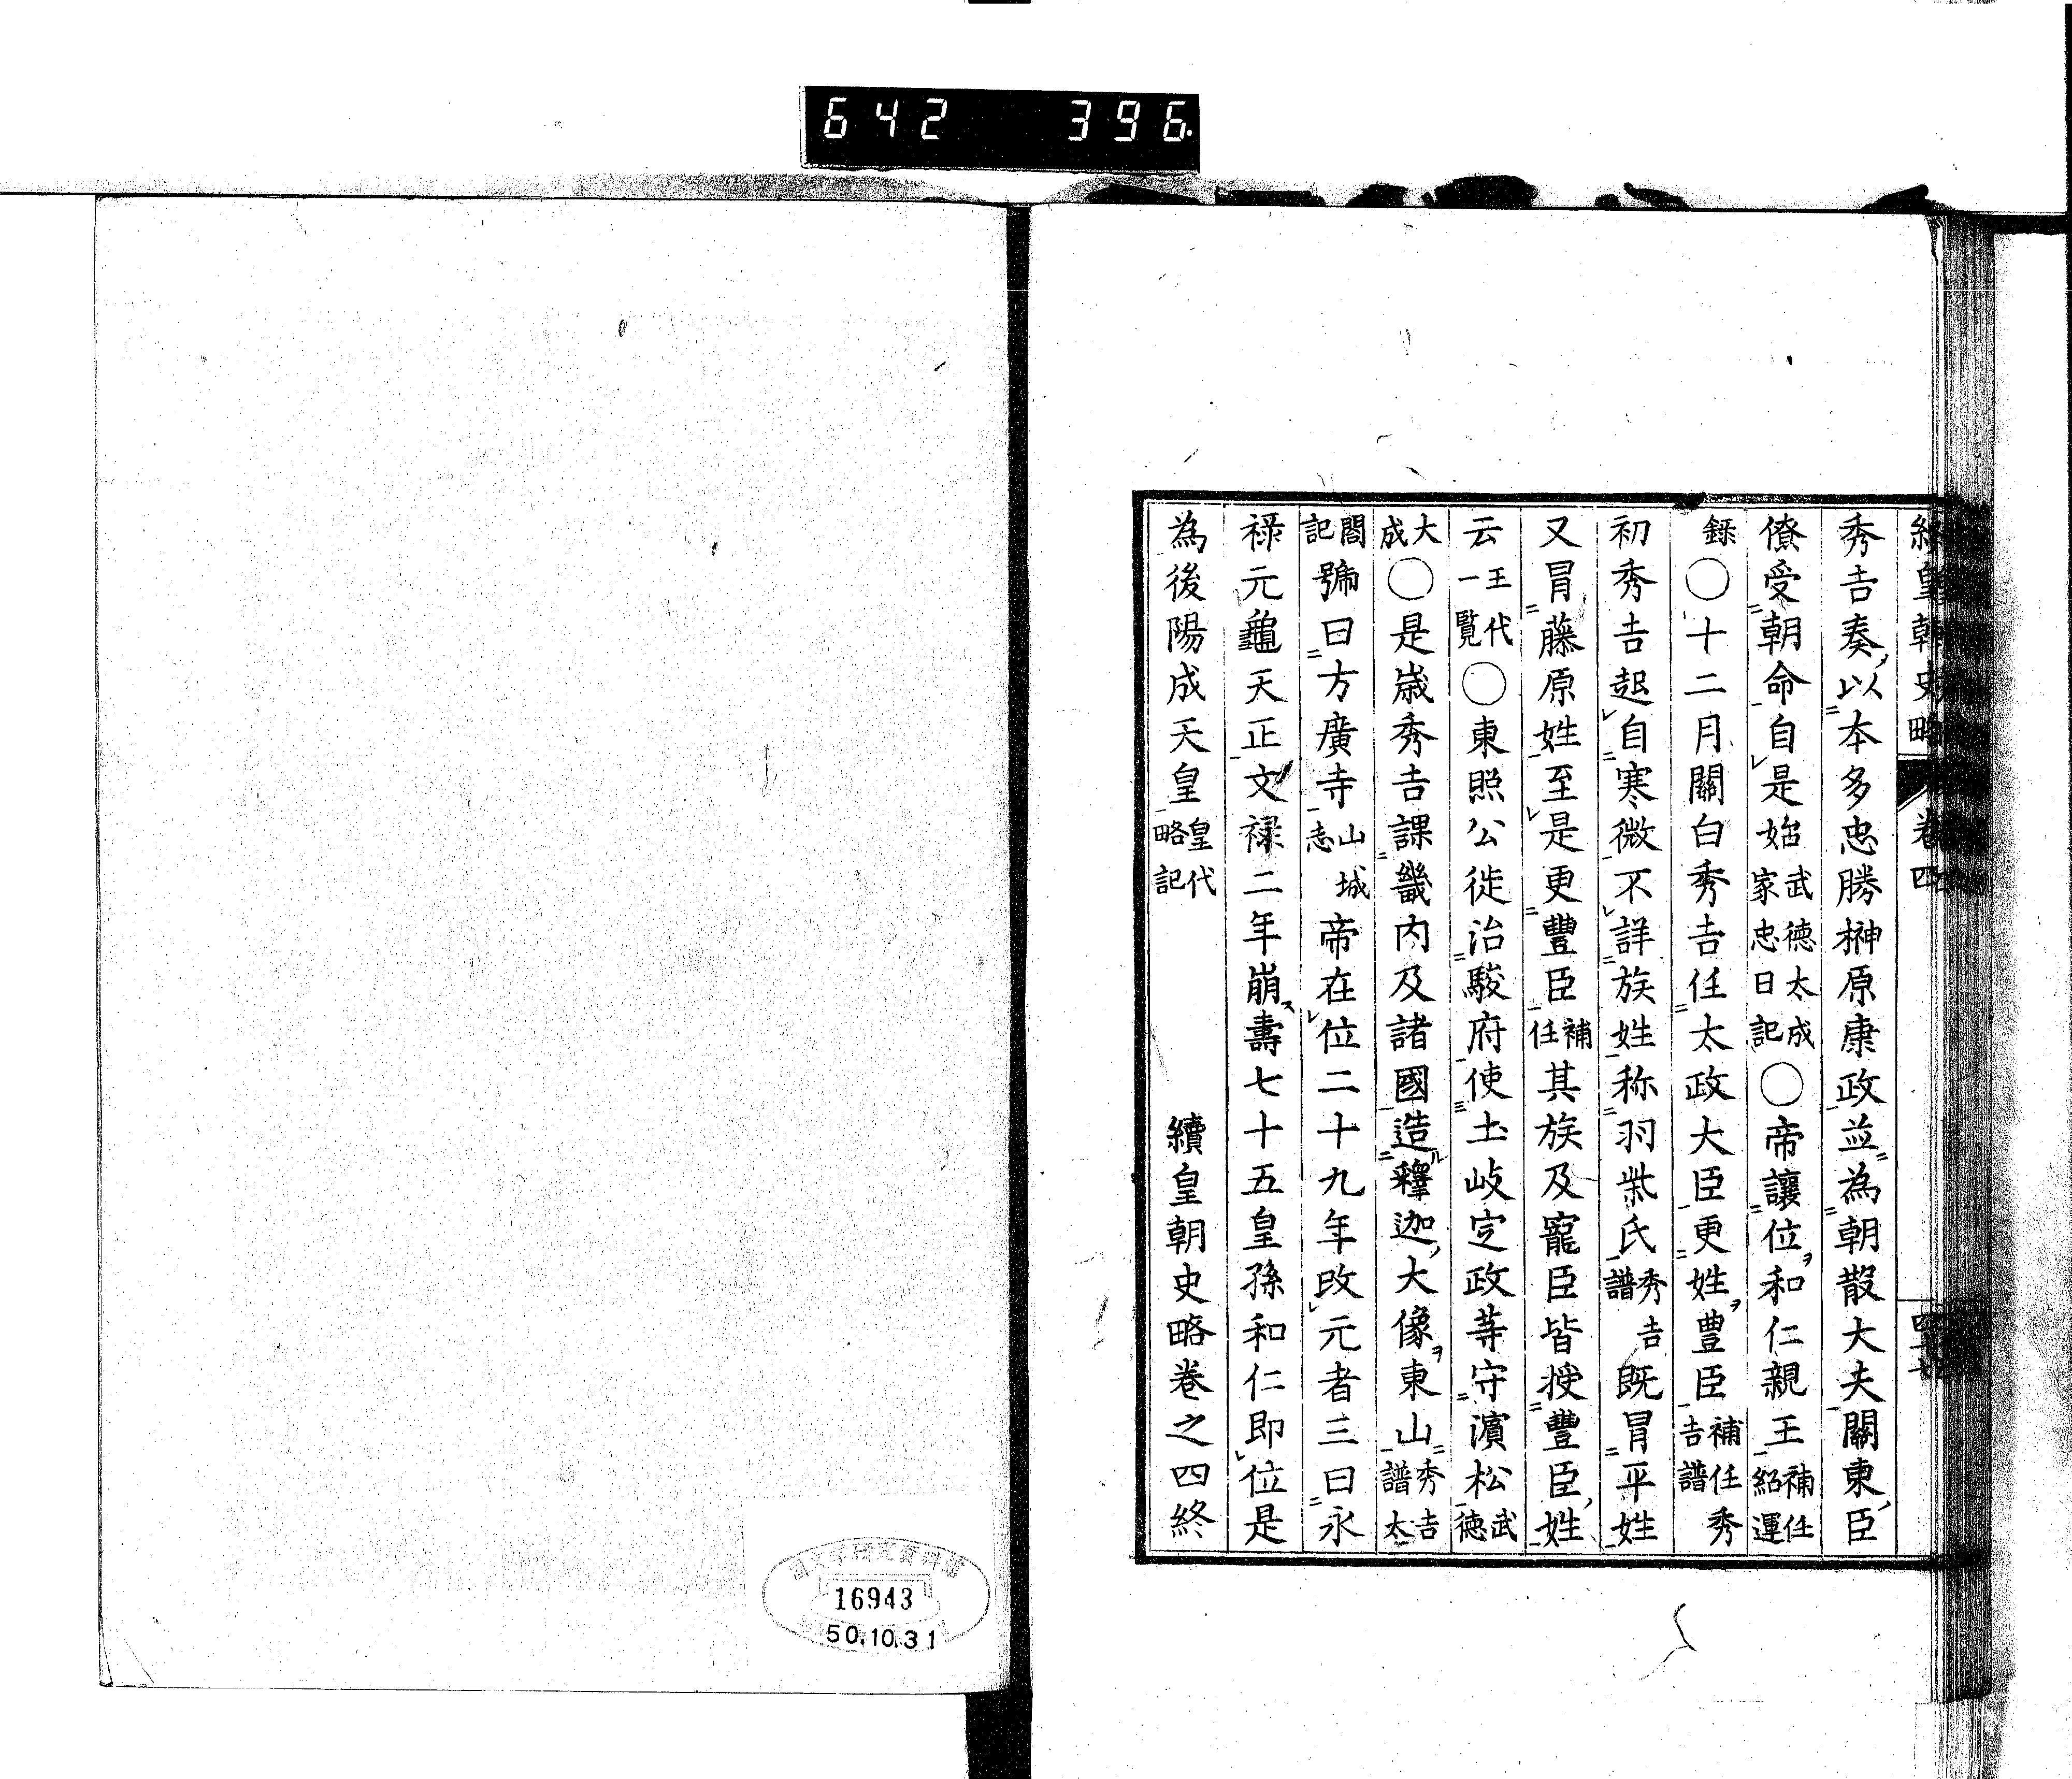 642 396
續皇朝史略 卷四 四十七
秀吉奏以本多忠勝榊原康政並為朝散大夫關東臣
僚受朝命自是始武德大成家忠日記〇帝讓位和仁親王補任紹運
錄〇十二月關白秀吉任太政大臣更姓豊臣補任秀吉譜
初秀吉起自寒微不詳族姓称羽柴氏秀吉譜既冒平姓
又冒藤原姓至是更豐臣補任其族及寵臣皆授豐臣姓
云王代一覽〇東照公徙治駿府使土岐定政等守濵松武德
大成〇是歳秀吉課畿內及諸國造釋迦大像東山秀吉譜太
閤記號曰方廣寺山城志帝在位二十九年改元者三曰永
祿元龜天正文祿二年崩壽七十五皇孫和仁即位是
為後陽成天皇皇代略記 續皇朝史略卷之四終
國文學研究資料館
16943
50.10.31